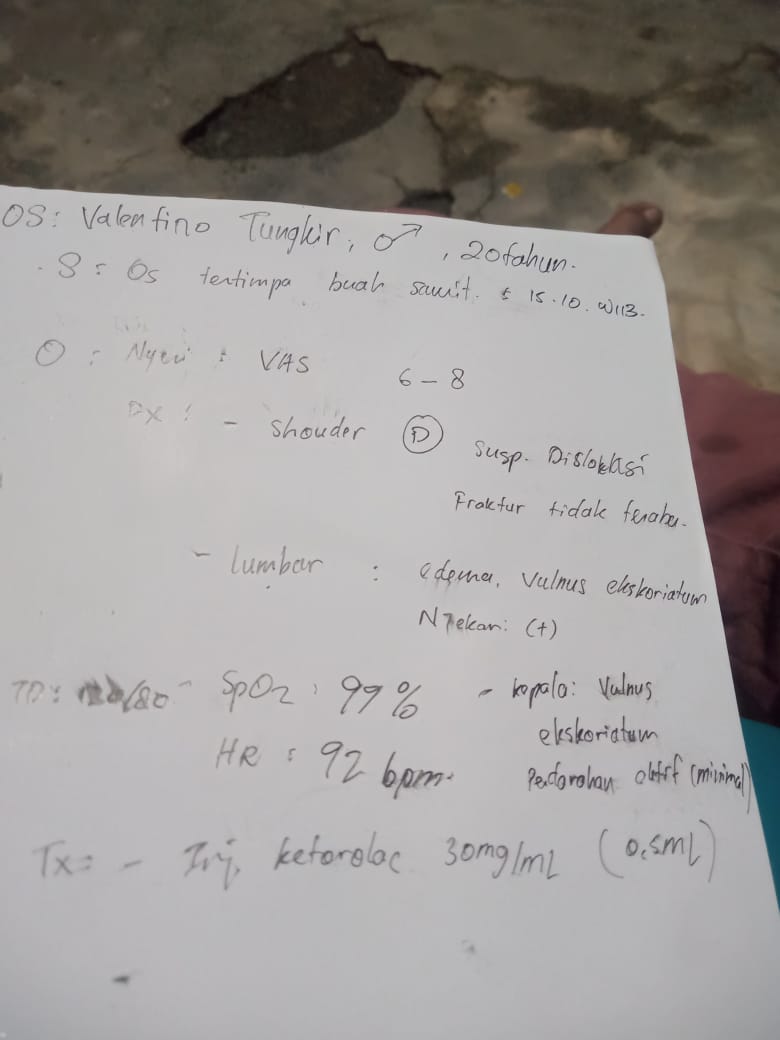 OS: Valenfino Tungkir, ♂, 20 tahun.
S: Os tertimpa buah sawit. ± 15.10. WIB.
O: Nyeri: VAS 6-8
Px: - Shouder (D) Susp. Dislokasi
Fraktur tidak teraba.
- lumbar : edema, Vulnus ekskoriatum
N Tekan: (+)
TD: /80 - SpO2: 99% - kepala: Vulnus
ekskoriatum
HR: 92 bpm. Pendarahan aktif (minimal)
Tx: - Inj. ketorolac 30mg/mL (0.5mL)